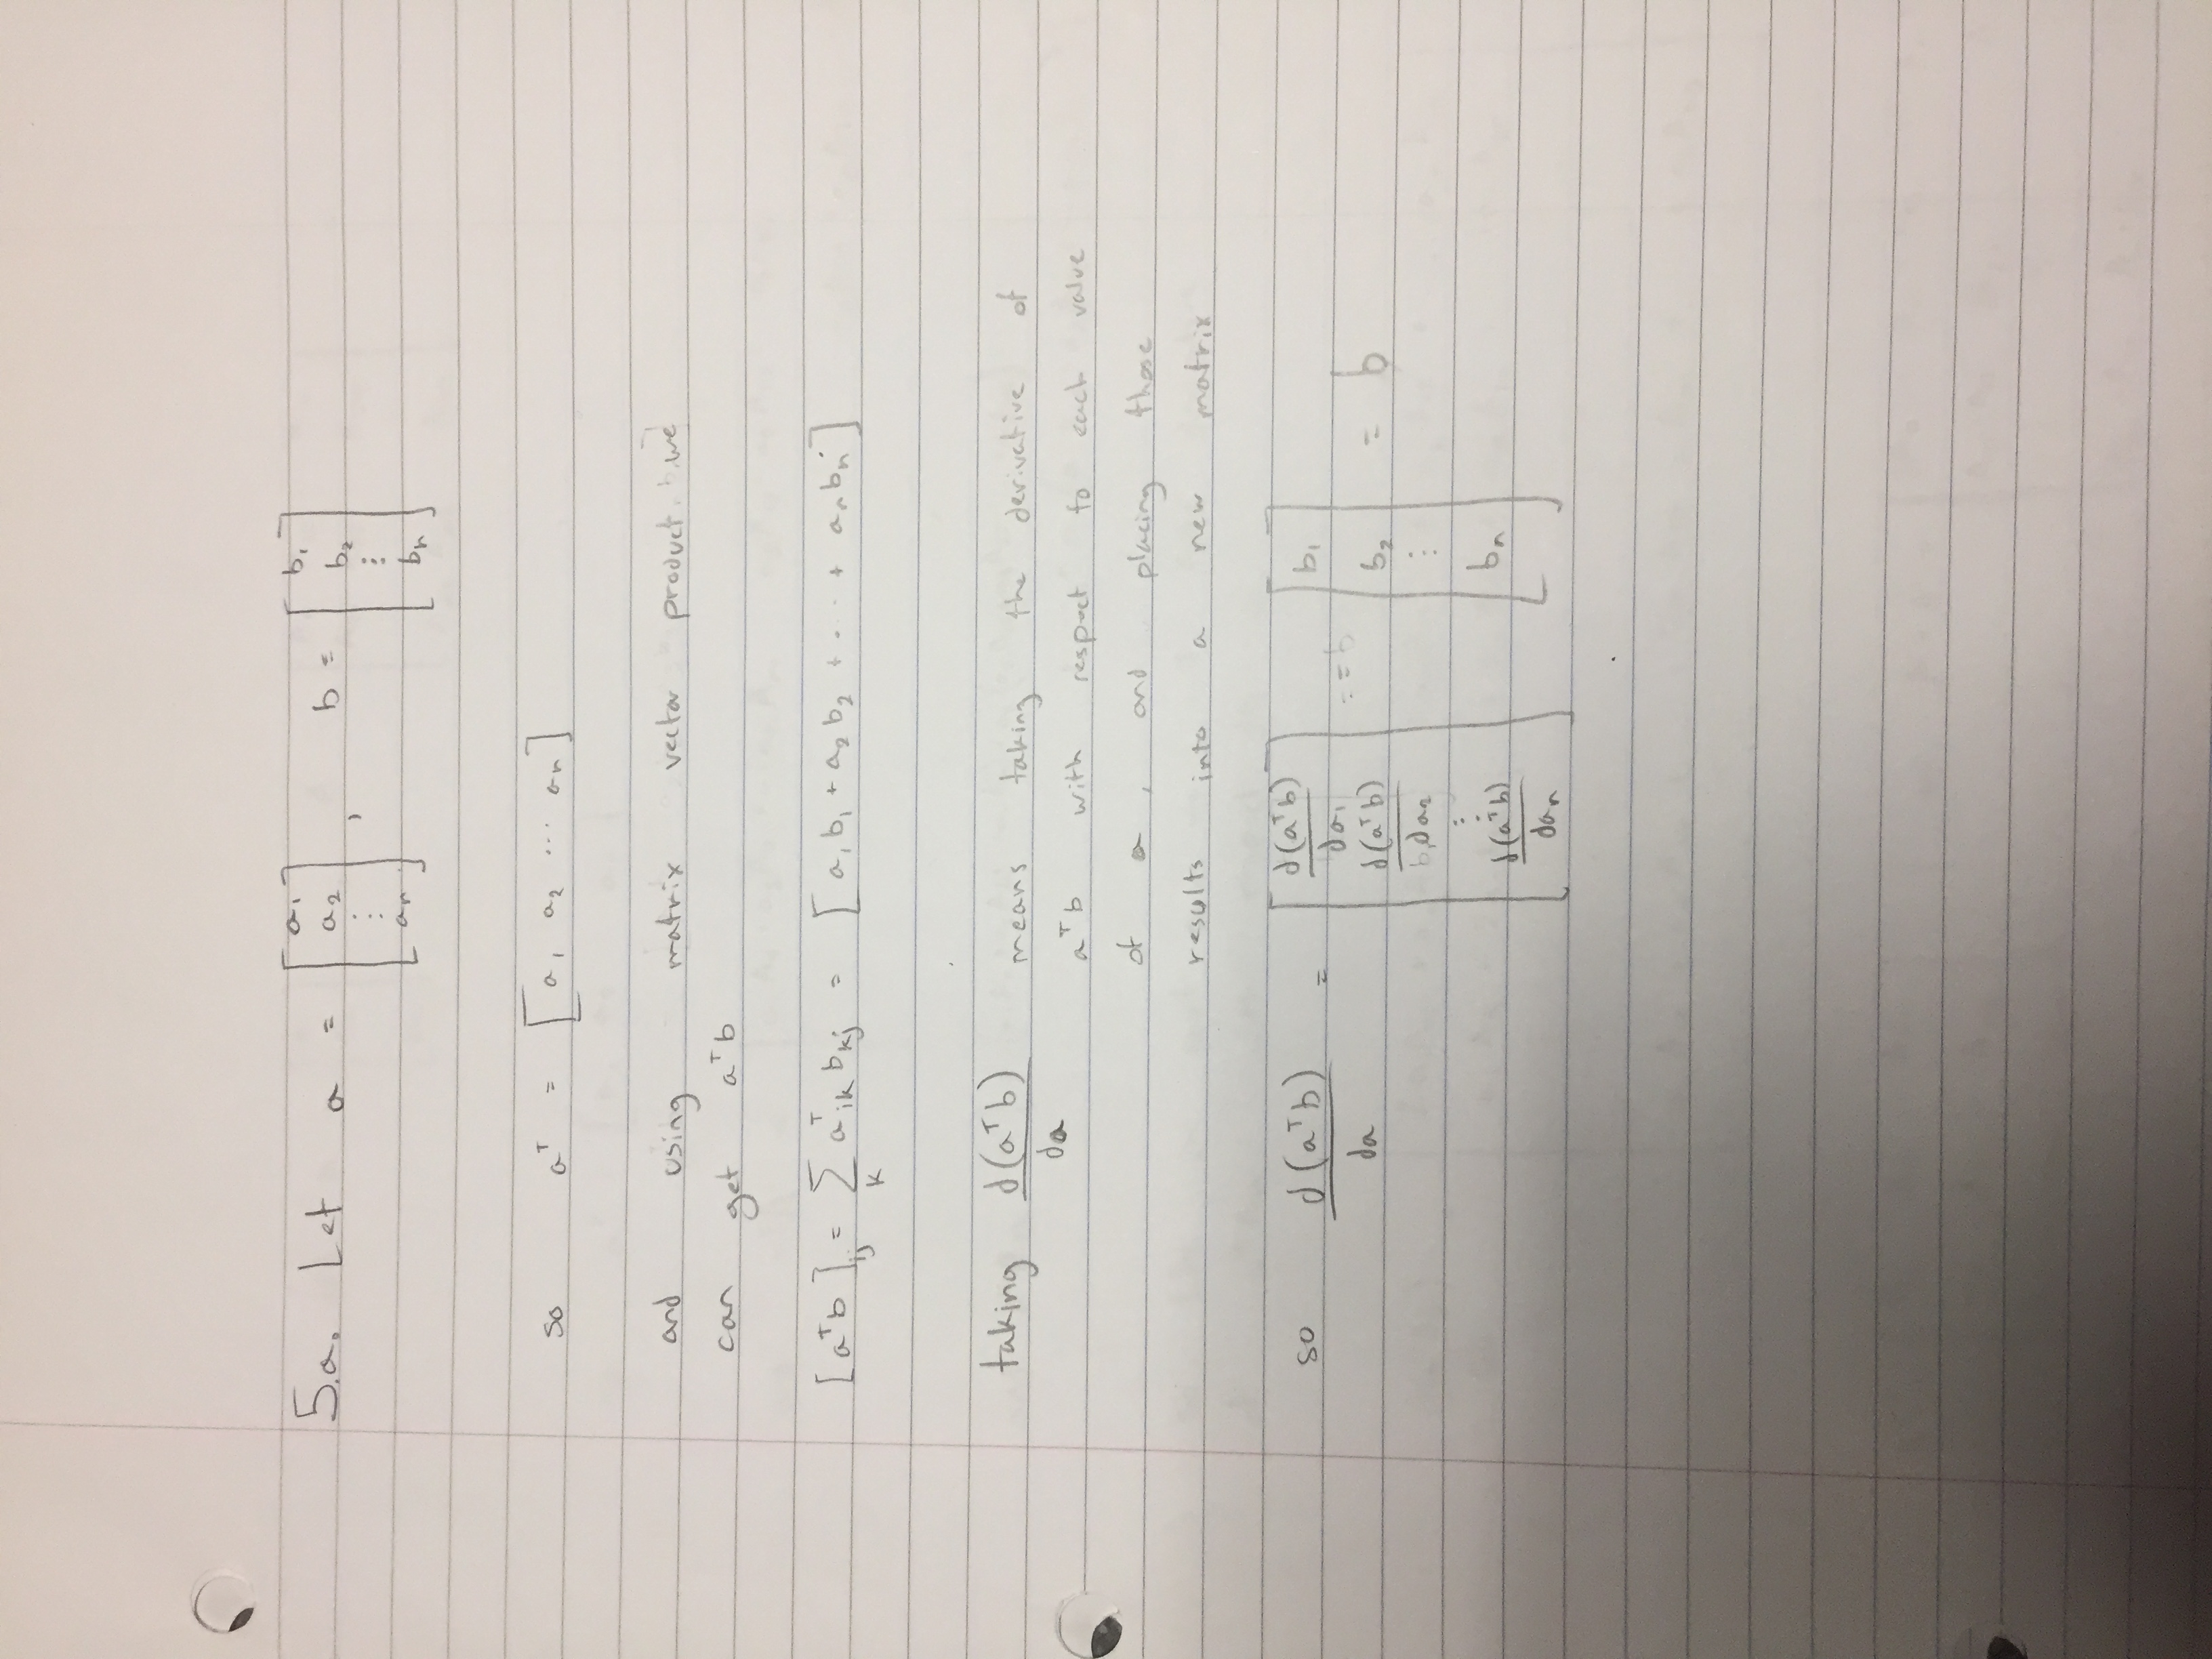 5.a. Let a = [a₁ a₂ ⋮ aₙ], b = [b₁ b₂ ⋮ bₙ]
so aᵀ = [a₁ a₂ ... aₙ]
and using matrix vector product we
can get aᵀb
[aᵀb]ᵢⱼ = ∑ₖ aᵀᵢₖ bₖⱼ = [a₁b₁ + a₂b₂ + ... + aₙbₙ]
taking d(aᵀb)/da means taking the derivative of
aᵀb with respect to each value
of a, and placing those
results into a new matrix
so d(aᵀb)/da = [d(aᵀb)/da₁ d(aᵀb)/da₂ ⋮ d(aᵀb)/daₙ] = [b₁ b₂ ⋮ bₙ] = b